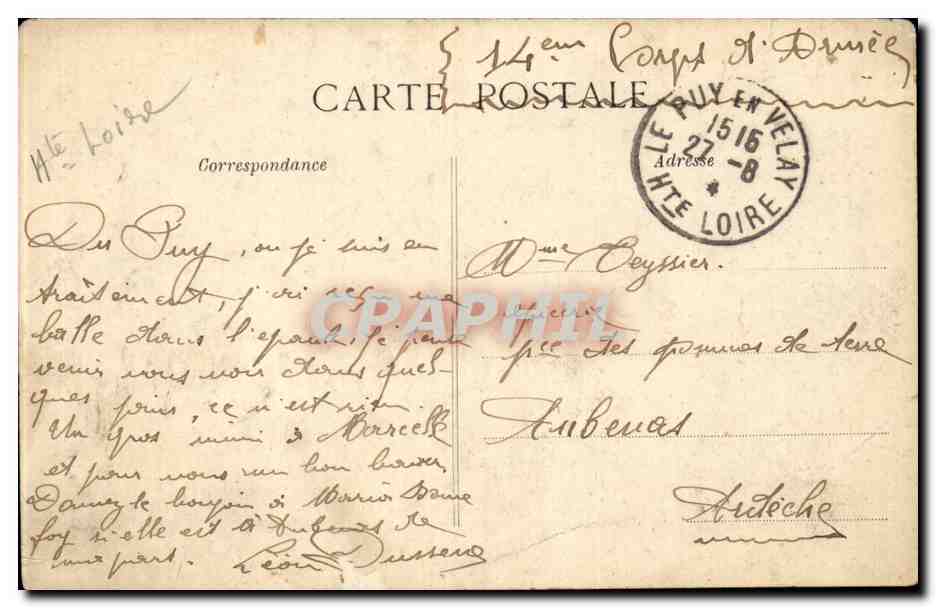 14em Corps d'Armée
CARTE POSTALE
Hte Loire
LE PUY EN VELAY
15 16
27 -8
*
HTE LOIRE
Correspondance
Adresse
Du Puy, ou je suis en
traitement, j'ai reçu une
balle dans l'epaule, je pense
venir vous voir dans quel-
ques jours, ce n'est rien.
Un gros mimi à Marcelle
et pour vous un bon baiser
Donnez le bonjour à Maria
si elle est à Aubenas de
ma part. Léon
Mme Teyssier.
epicerie
pce des pommes de terre
Aubenas
Ardèche
CRAPHIL